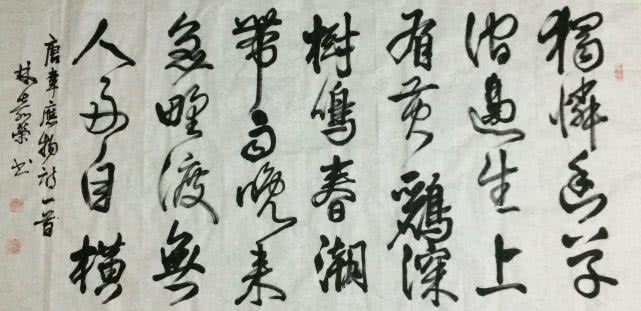 獨憐幽草
澗邊生上
有黃鸝深
樹鳴春潮
帶雨晚来
急野渡無
人舟自橫
唐韋應物詩一首
林 榮书